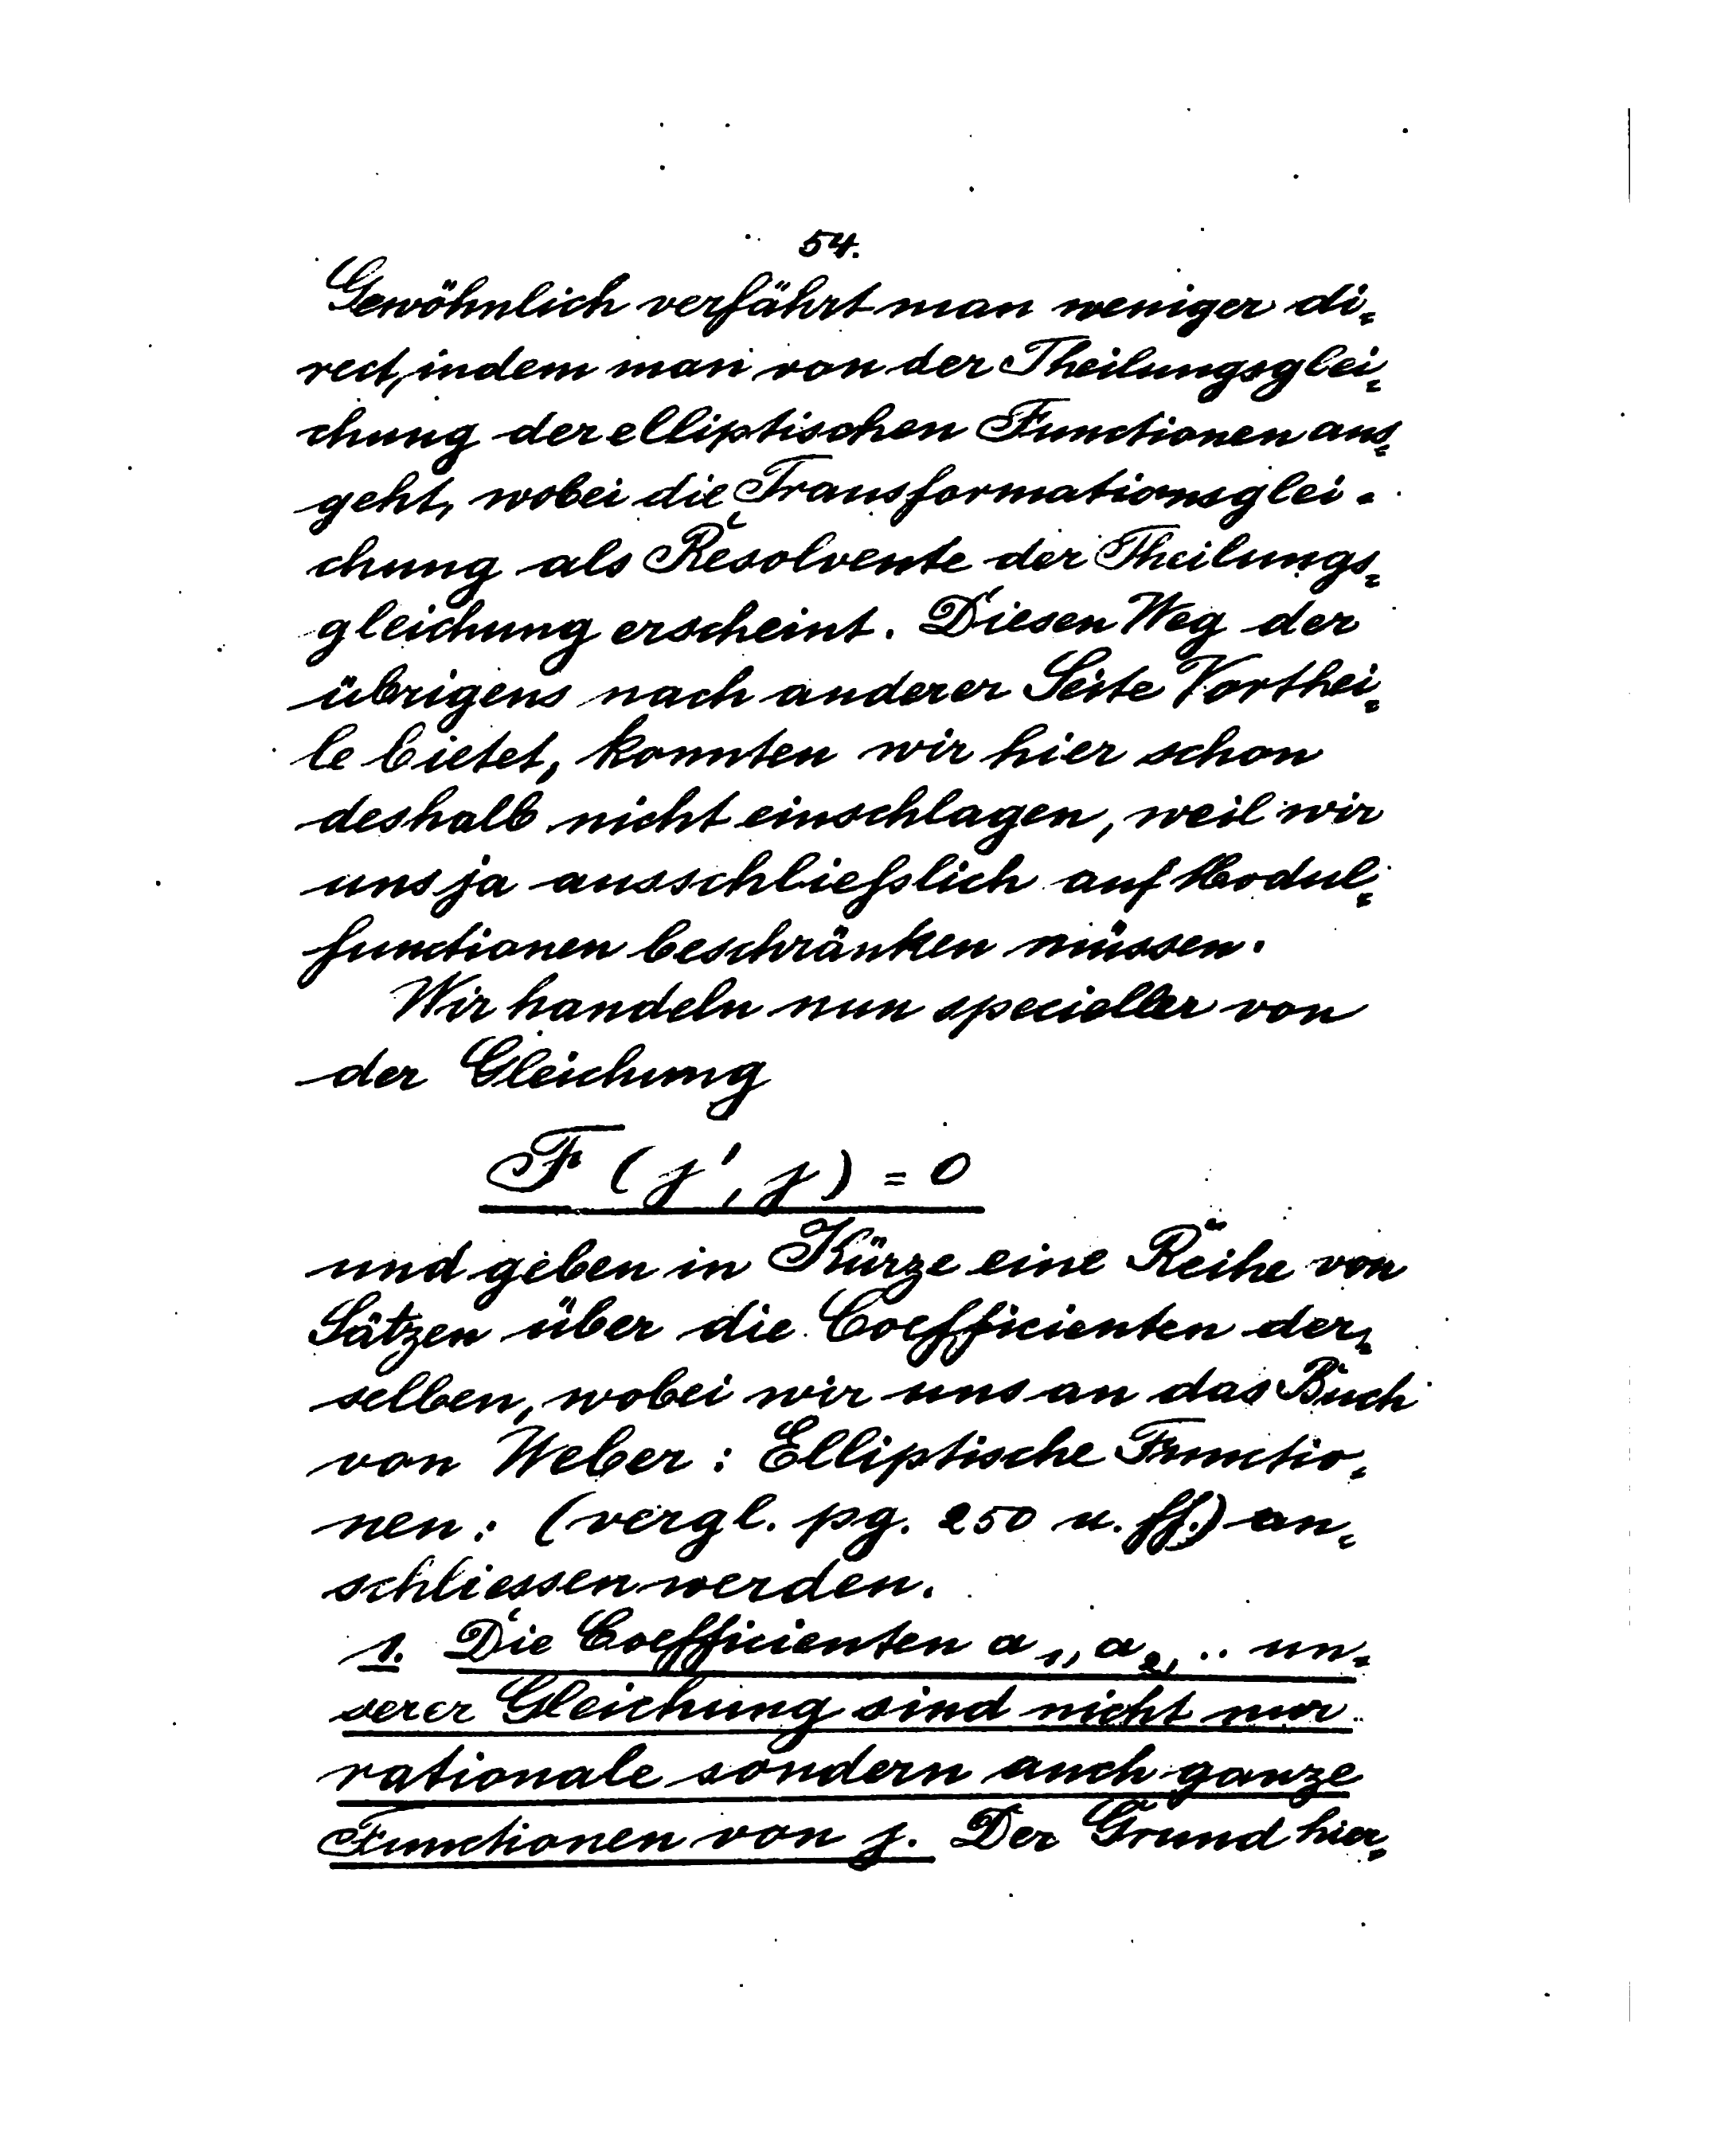 54.
Gewöhnlich verfährt man weniger di-
rect, indem man von der Theilungsglei-
chung der elliptischen Functionen aus-
geht, wobei die Transformationsglei-
chung als Resolvente der Theilungs-
gleichung erscheint. Diesen Weg der
übrigens nach anderer Seite Vorthei-
le bietet, konnten wir hier schon
deshalb nicht einschlagen, weil wir
uns ja ausschließlich auf Modul-
functionen beschränken müssen.
Wir handeln nun specieller von
der Gleichung
F (j', j) = 0
und geben in Kürze eine Reihe von
Sätzen über die Coefficienten der-
selben, wobei wir uns an das Buch
von Weber: Elliptische Functio-
nen: (vergl. pg. 250 u. ff.) an-
schliessen werden.
1. Die Coefficienten a₁, a₂, .. un-
serer Gleichung sind nicht nur
rationale sondern auch ganze
Functionen von j. Der Grund hier-